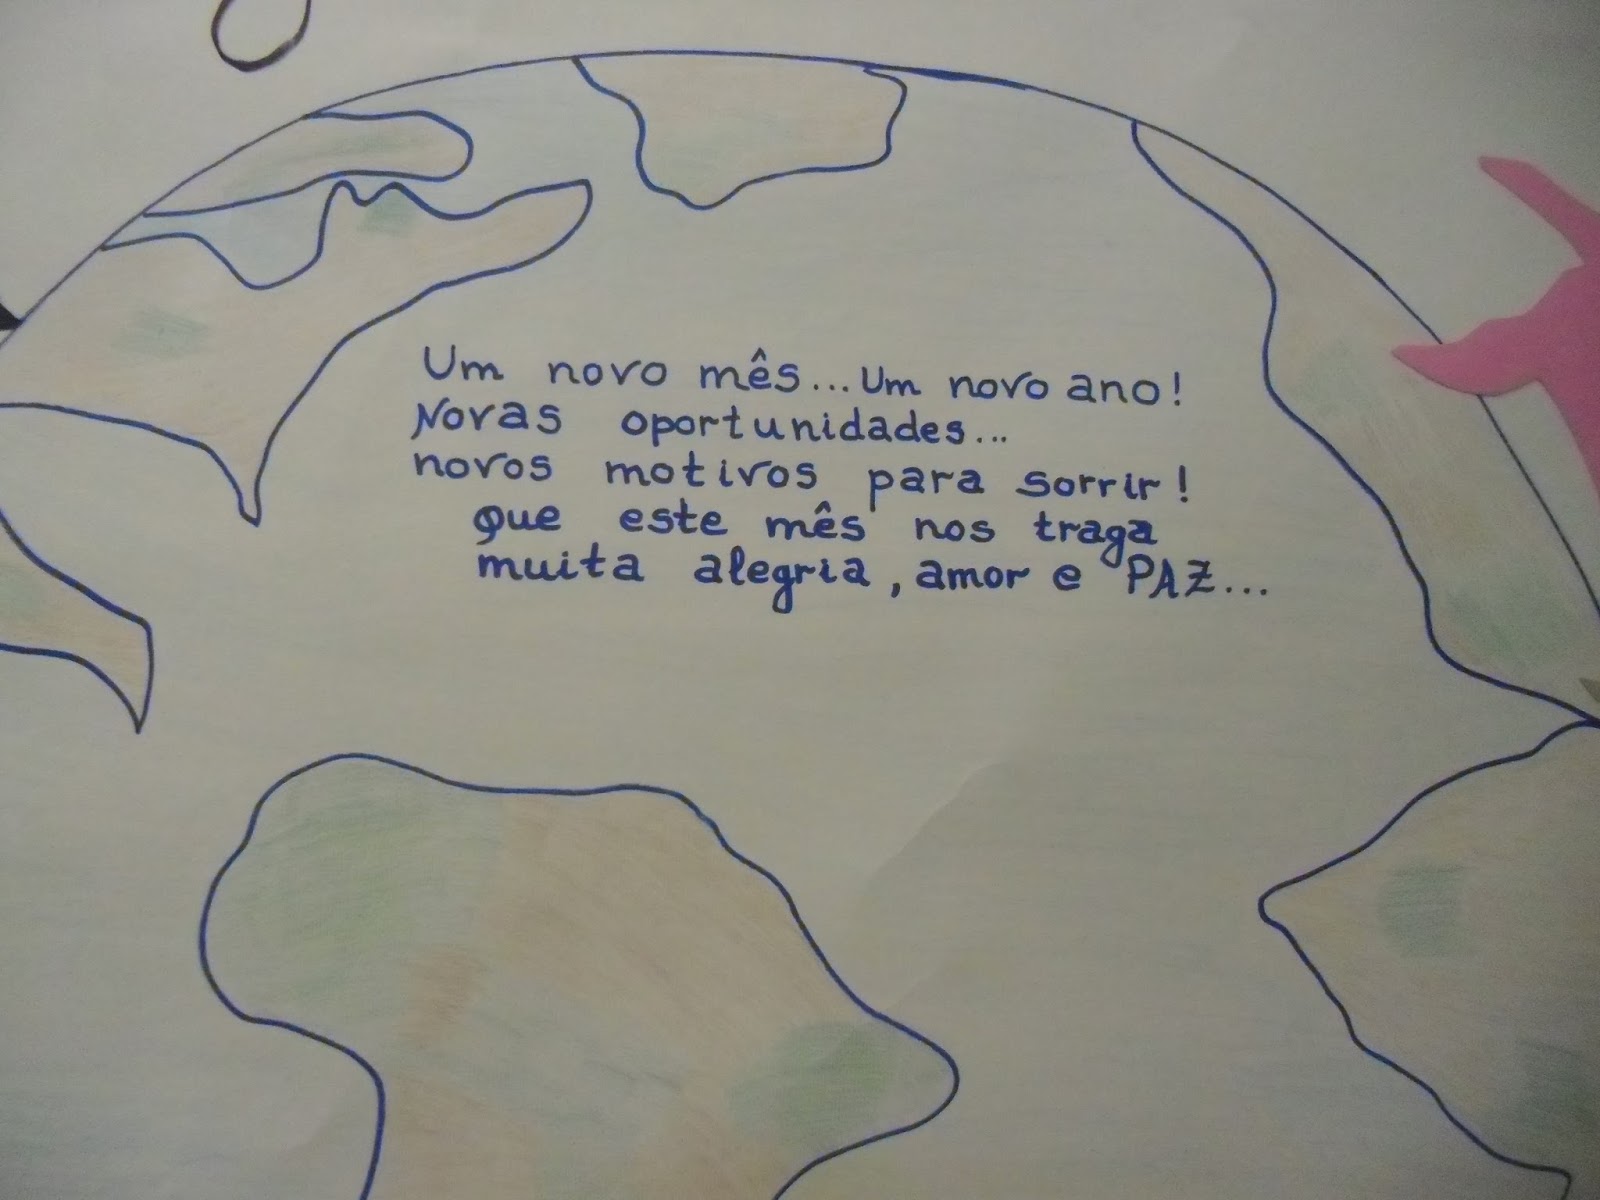 Um novo mês... Um novo ano!
Novas oportunidades...
novos motivos para sorrir!
que este mês nos traga
muita alegria, amor e PAZ...